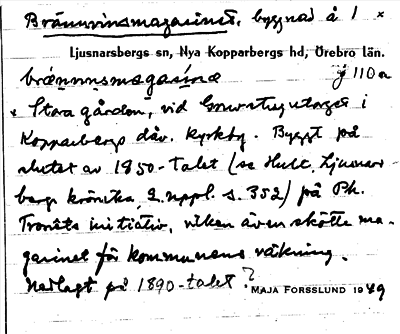 Brännvinsmagasinet, byggnad å 1 x
Ljusnarsbergs sn, Nya Kopparbergs hd, Örebro län.
brænnvinsmagasína
x Stora gården, vid Gruvstugutorget i
Kopparbergs dåv. kyrkby. Byggt på
slutet av 1850-talet (se Hult, Ljusnars-
bergs krönika, 2. uppl. s. 352) på Ph.
Tronêts initiativ, vilken även skötte ma-
gasinet för kommunens räkning.
Nedlagt på 1890-talet?
MAJA FORSSLUND 1949